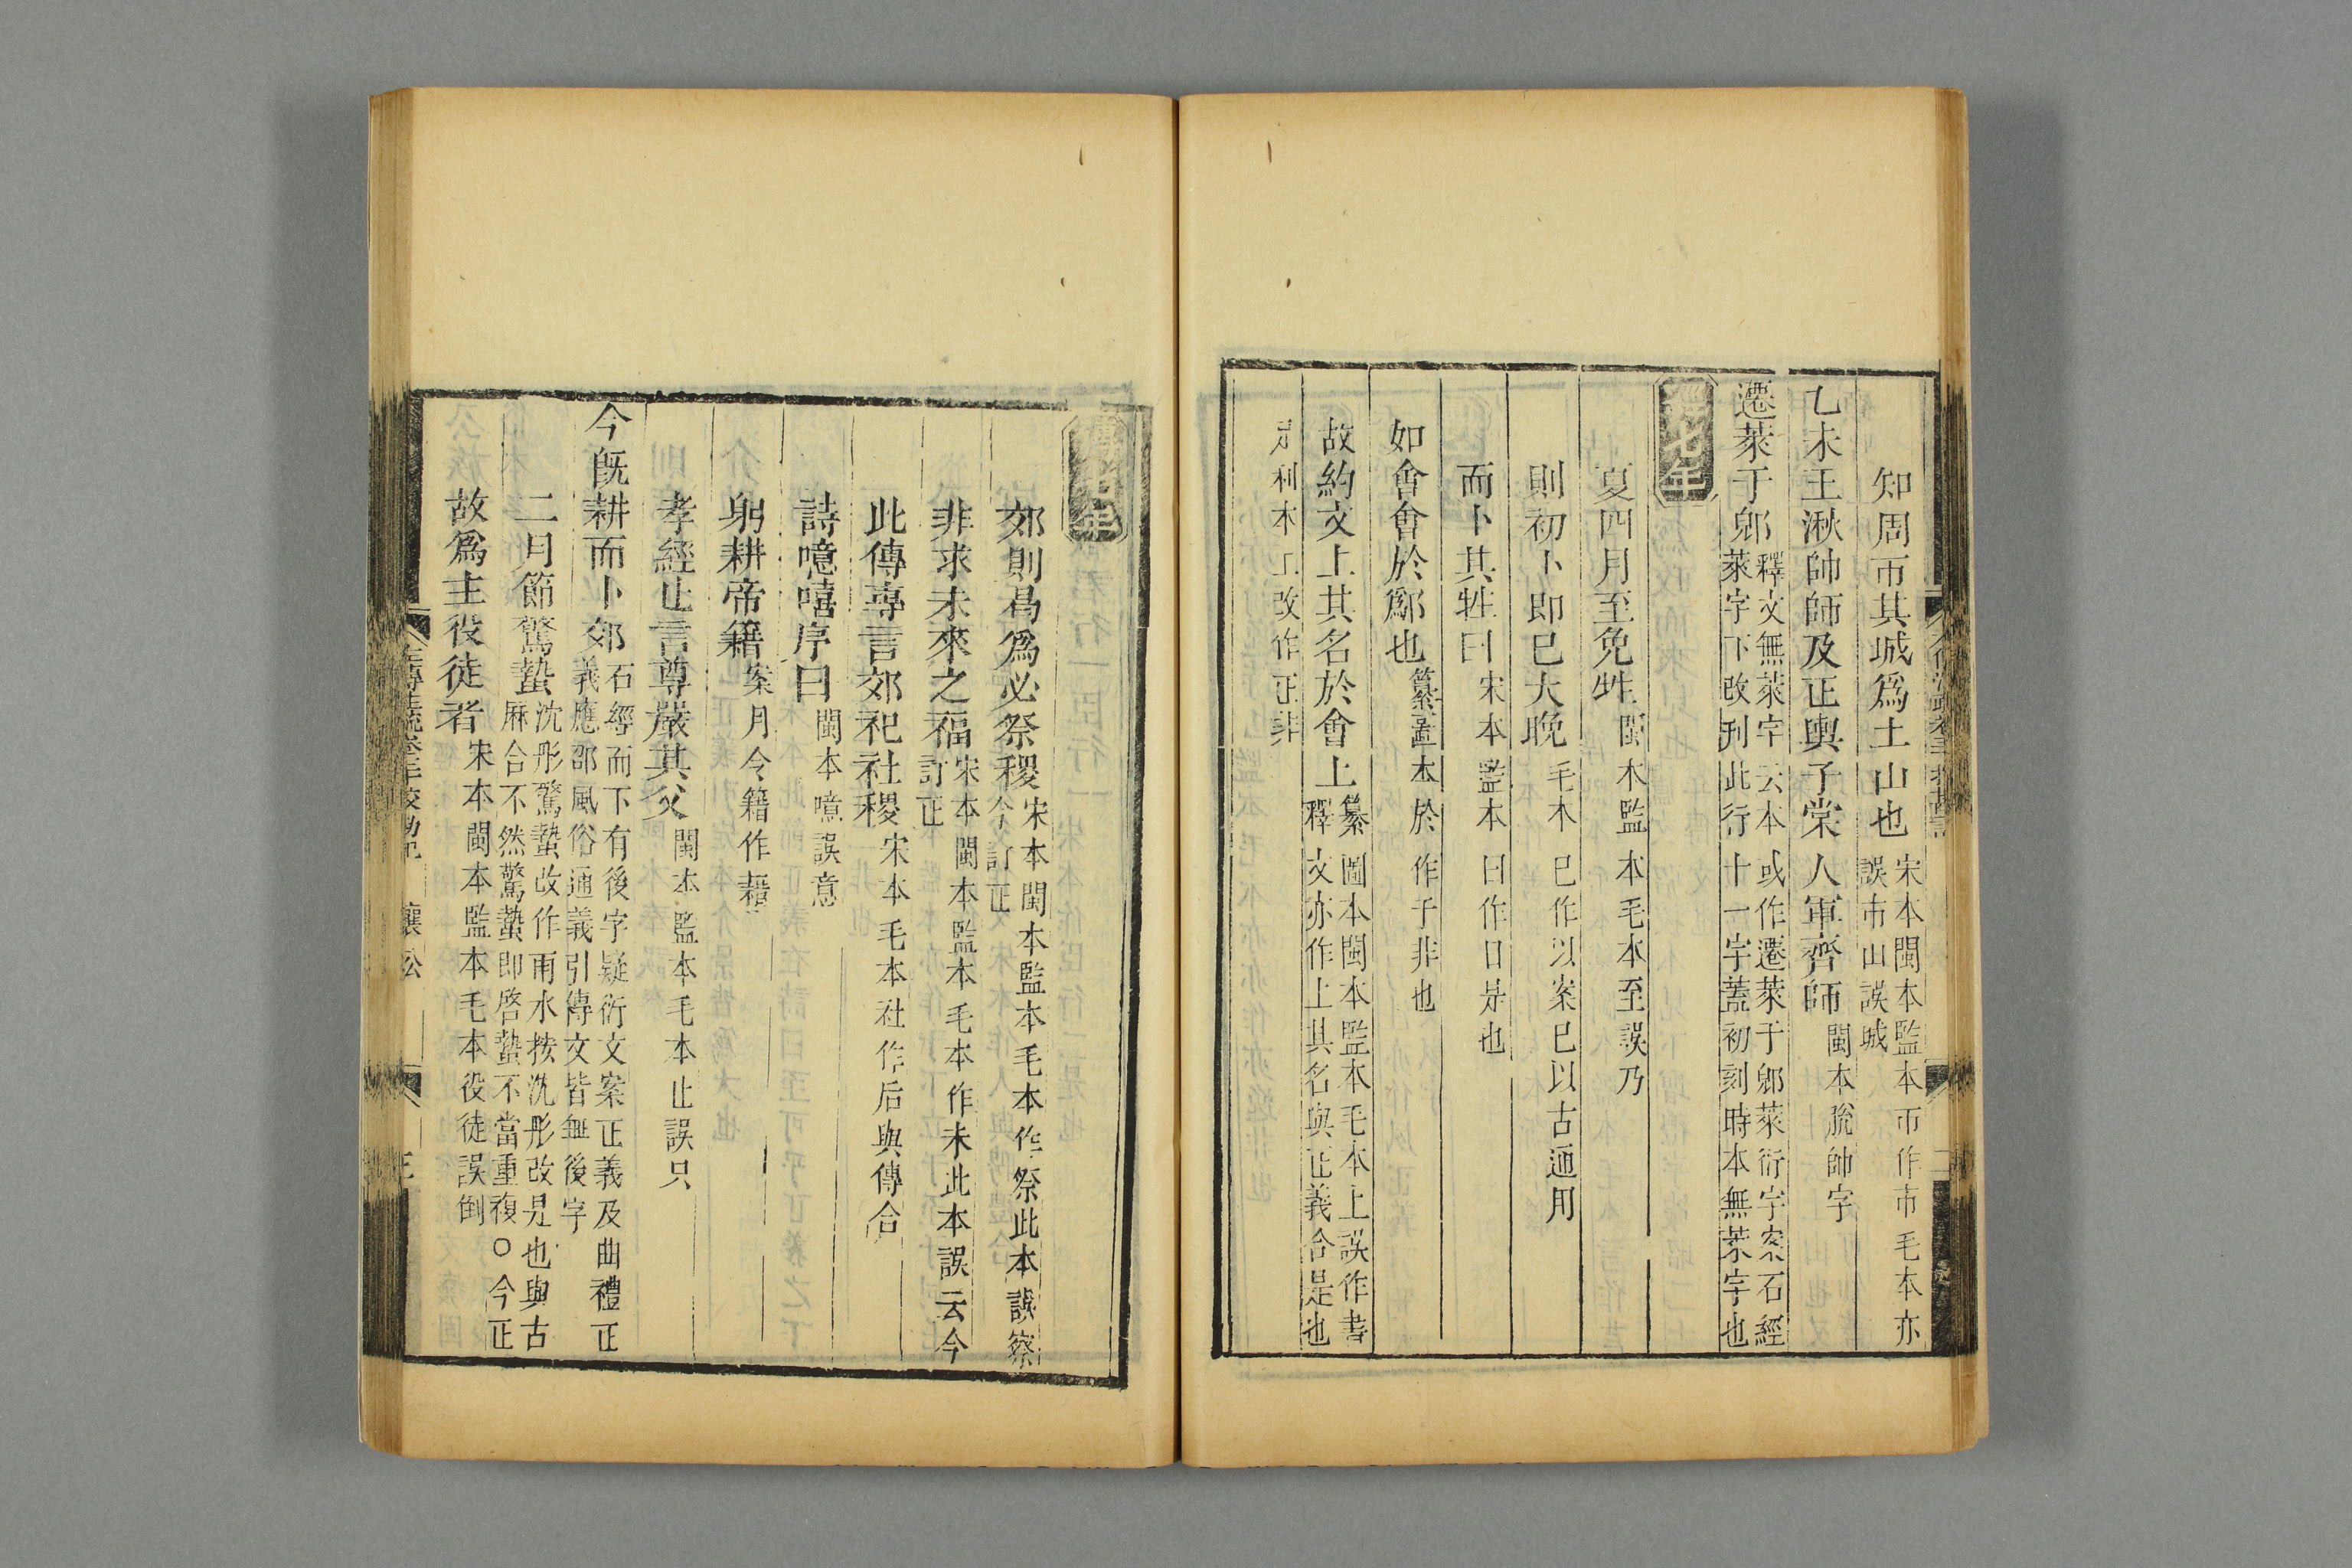 知周帀其城爲土山也宋本閩本監本帀作市毛本亦誤市山誤城
乙未王湫帥師及正輿子棠人軍齊師閩本脫帥字
遷萊于郳釋文無萊字云本或作遷萊于郳萊衍字案石經萊字下改刋此行十一字蓋初刻時本無萊字也
經七年
夏四月至免牲閩本監本毛本至誤乃
則初卜即巳大晚毛本巳作以案巳以古通用
而卜其牲曰宋本監本曰作日是也
如會會於鄬也纂圖本於作于非也
故約文上其名於會上纂圖本閩本監本毛本上誤作書釋文亦作上其名與正義合是也
足利本上改作正非
傳七年
郊則曷爲必祭稷宋本閩本監本毛本作祭此本誤察今訂正
非求未來之福宋本閩本監本毛本作未此本誤云今訂正
此傳專言郊祀社稷宋本毛本社作后與傳合
詩噫嘻序曰閩本噫誤意
躬耕帝籍案月令籍作藉
孝經止言尊嚴其父閩本監本毛本止誤只
今旣耕而卜郊石經而下有後字疑衍文案正義及曲禮正義應邵風俗通義引傳文皆無後字
二月節驚蟄沈彤驚蟄改作雨水按沈彤改是也與古厤合不然驚蟄即啓蟄不當重複○今正
故爲主役徒者宋本閩本監本毛本役徒誤倒